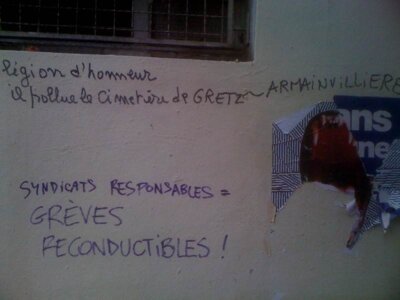 légion d'honneur
il pollue le cimetière de GRETZ~ARMAINVILLIERE
SYNDICATS RESPONSABLES =
GRÈVES
RECONDUCTIBLES !
ans
ne